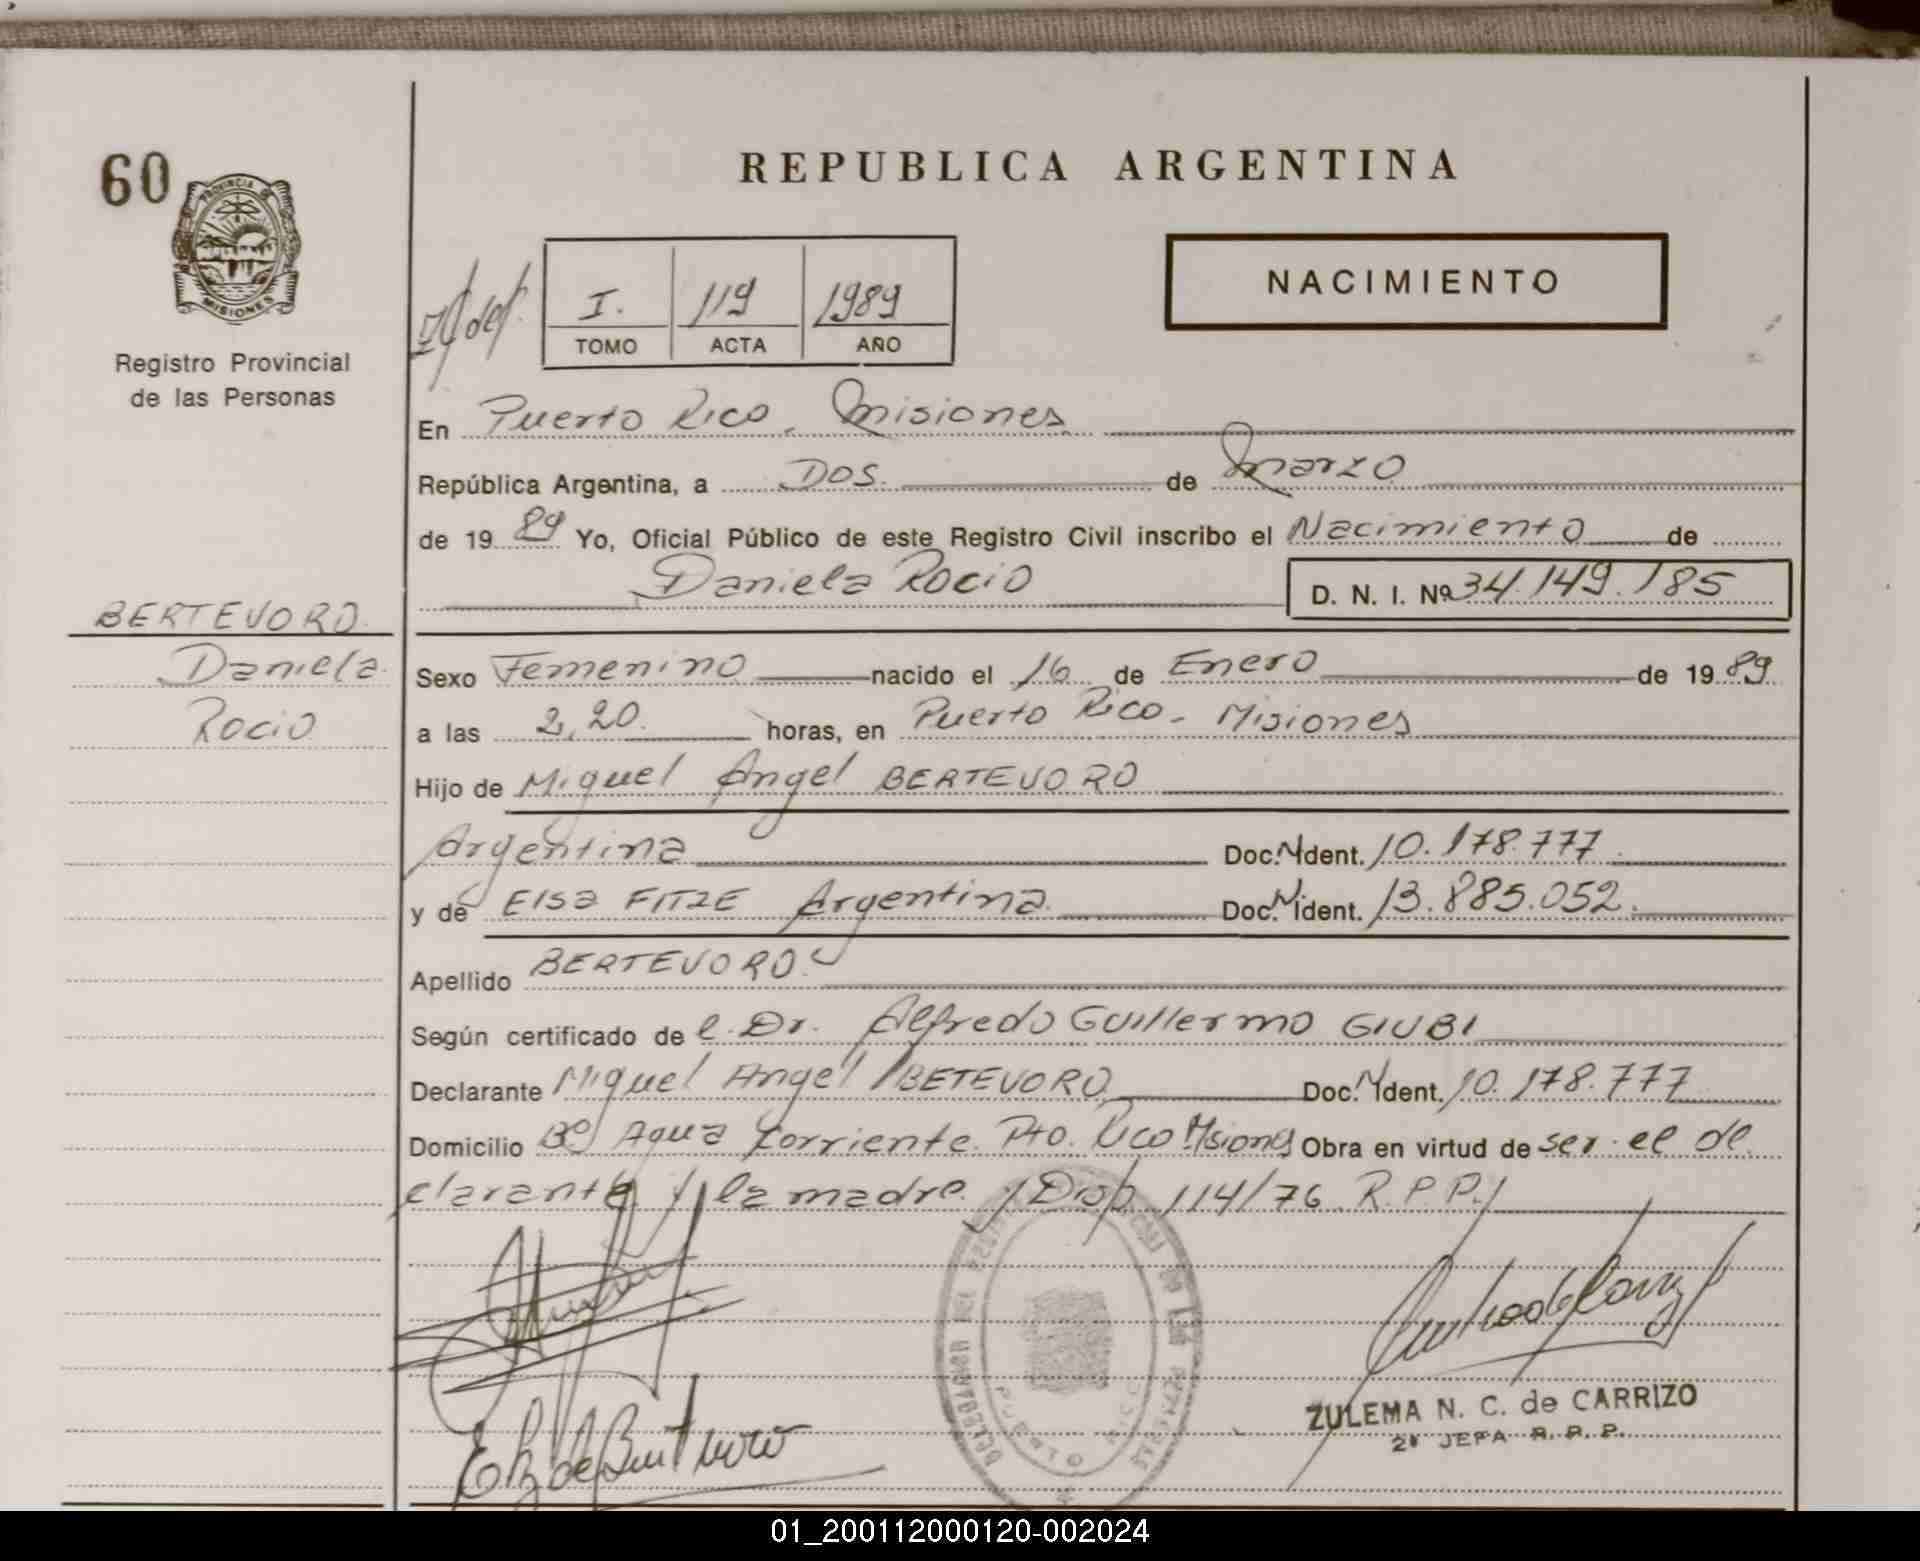 60
PROVINCIA DE
MISIONES
Registro Provincial
de las Personas
REPUBLICA ARGENTINA
NACIMIENTO
I. 119 1989
TOMO ACTA AÑO
En Puerto Rico. Misiones
República Argentina, a Dos. de Marzo
de 19 89 Yo, Oficial Público de este Registro Civil inscribo el Nacimiento de
Daniela Rocio D. N. I. Nº 34.149.185
BERTEVORO.
Daniela
Rocio
Sexo Femenino nacido el 16 de Enero de 19 89
a las 2,20. horas, en Puerto Rico - Misiones
Hijo de Miguel Angel BERTEVORO
Argentina Doc. N Ident. 10.178.777
y de Elsa FITZE Argentina. Doc. N Ident. 13.885.052.
Apellido BERTEVORO.
Según certificado de l. Dr. Alfredo Guillermo GIUBI
Declarante Miguel Angel BETEVORO Doc. N Ident. 10.178.777
Domicilio Bº Agua Corriente. Pto. Rico Msiones Obra en virtud de ser el de
clarante y la madre. / Disp. 114/76 R.P.P./
DELEGACION DEL
PUERTO RICO
ZULEMA N. C. de CARRIZO
2ª JEFA R. P. P.
01_200112000120-002024